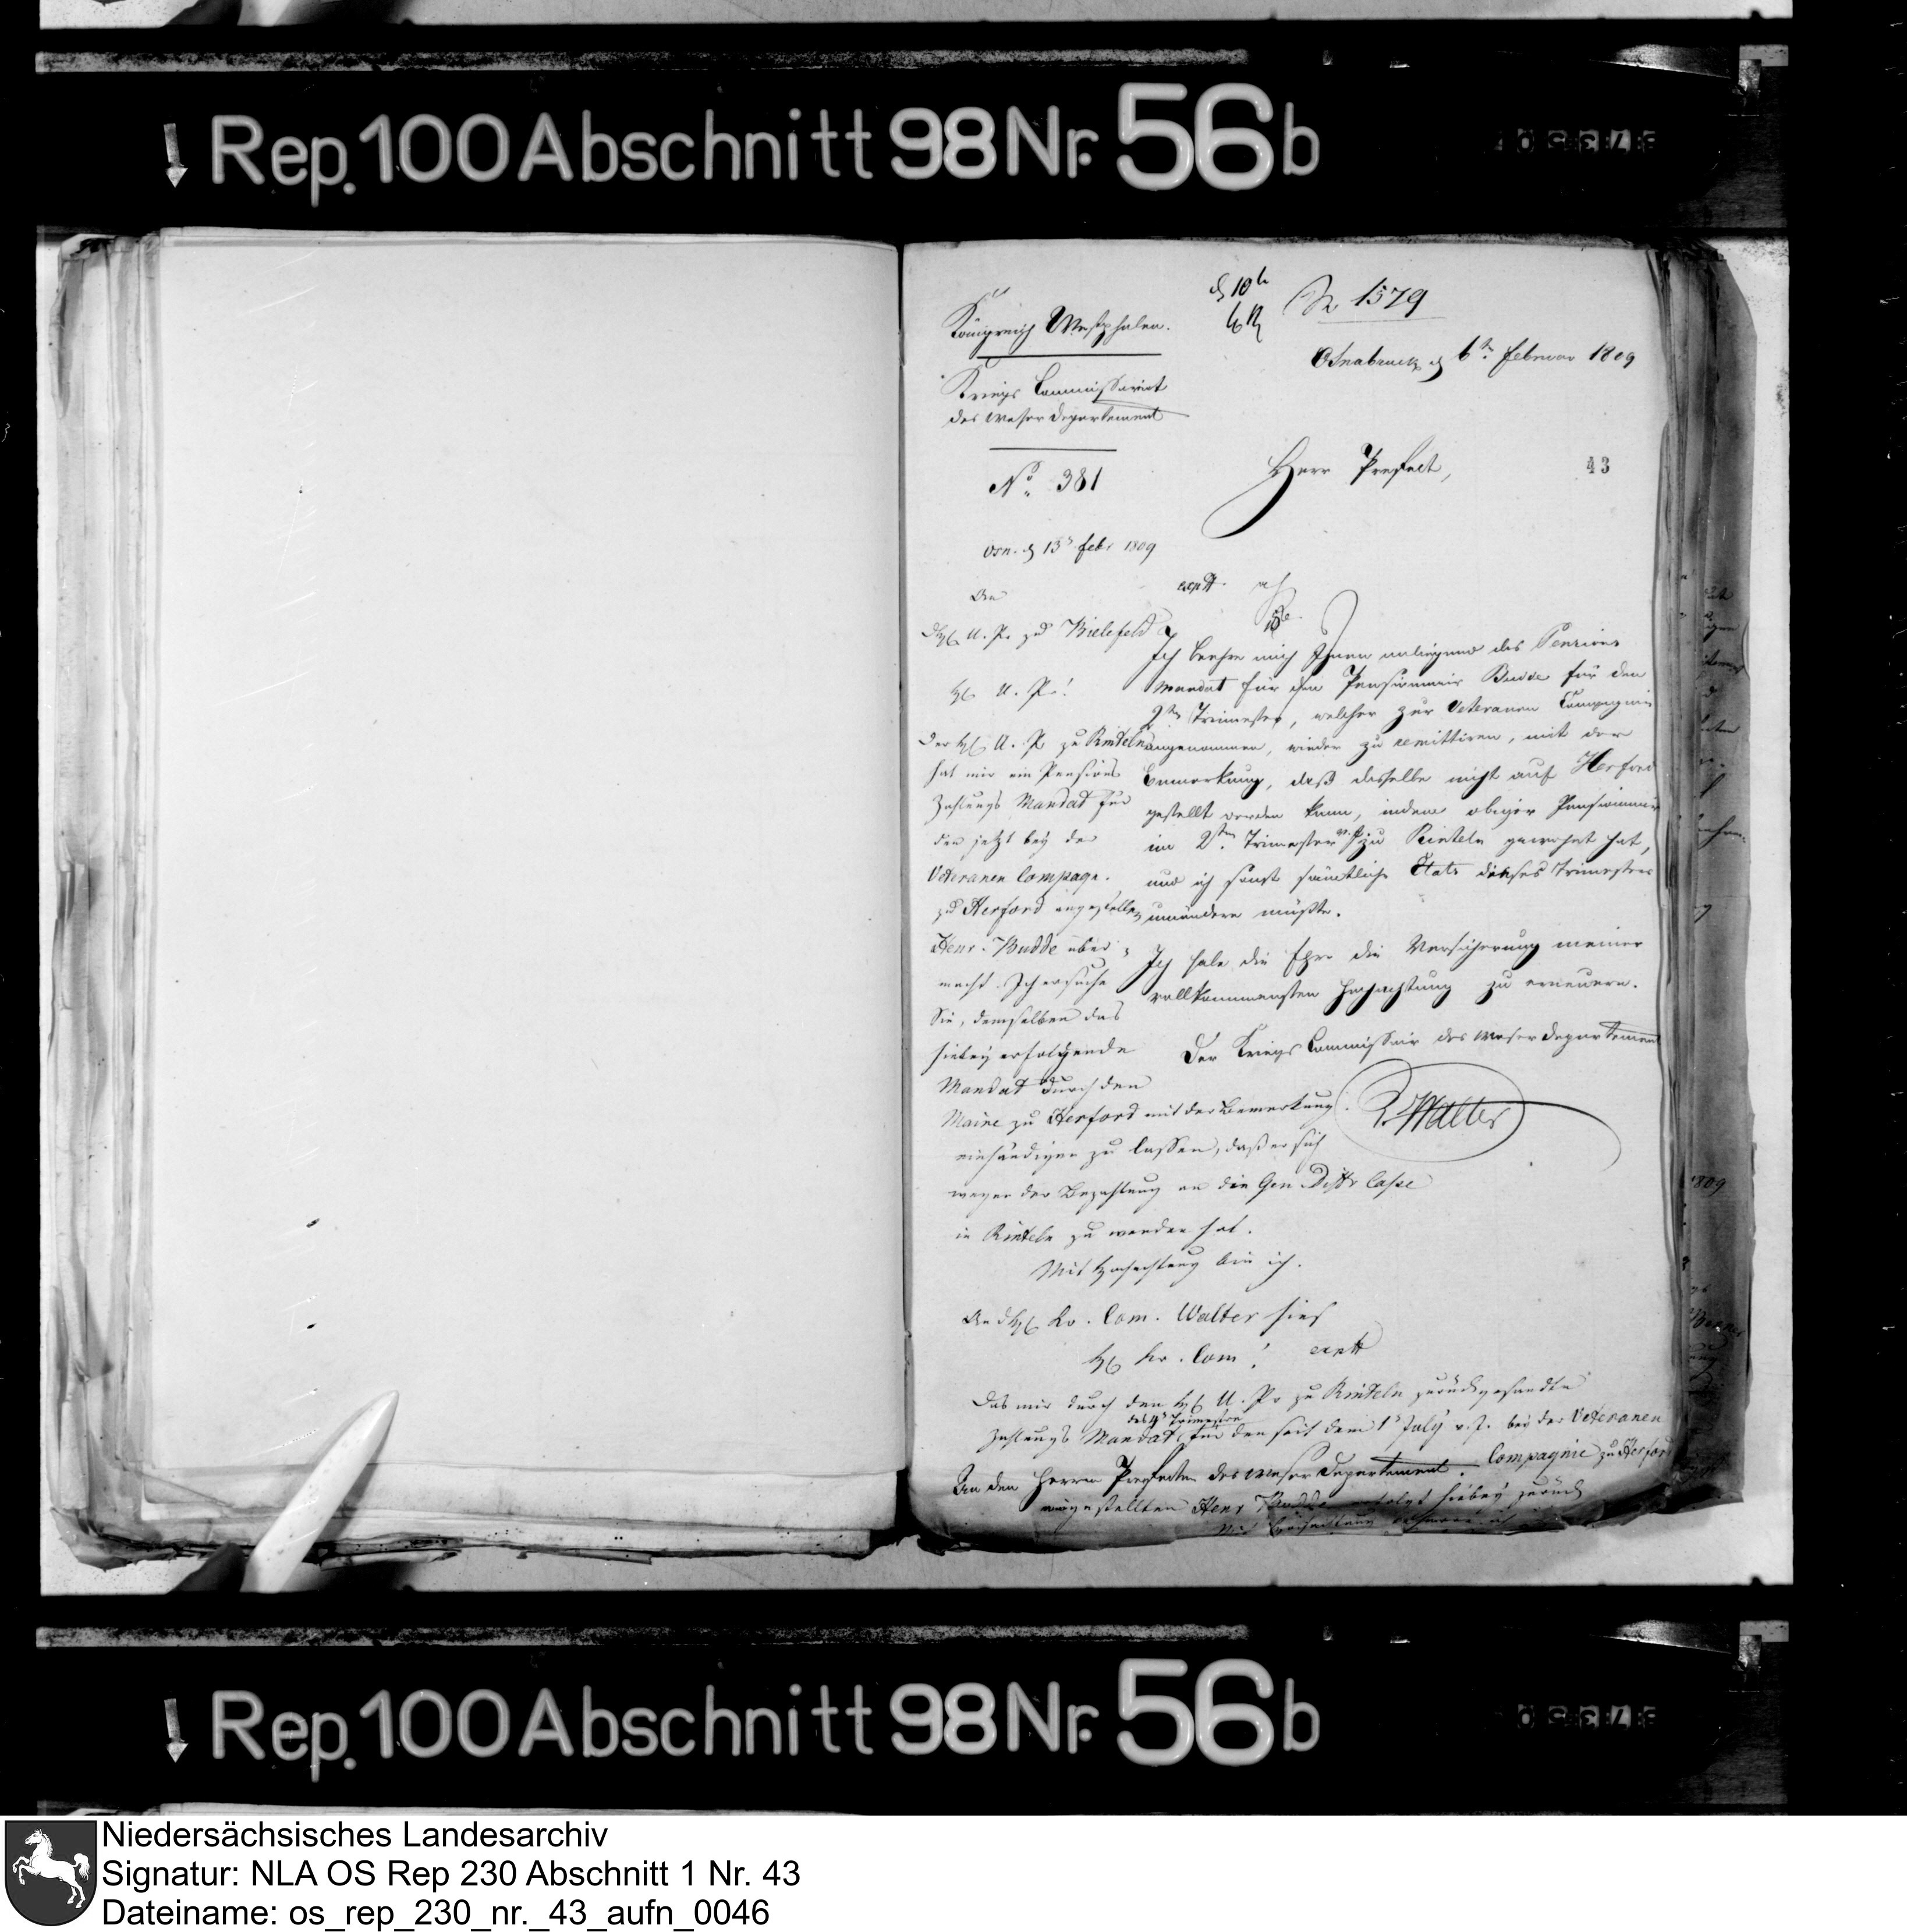 Rep. 100 Abschnitt 98 Nr. 56 b
Königreich Westphalen.
Kriegs Commissariat
des Weser Departement
N° 381
1579
Osnabrueck d 6ten Februar 1809
Herr Prefect,
43
Ich beehre mich Ihnen anliegend das Pensions
Mandat für den Pensionnair Budde für den
2ten Trimester, welcher zur Veteranen Compagnie
angenommen, wieder zu remittiren, mit der
Bemerkung, daß dasselbe nicht auf Herford
gestellt werden kann, indem obiger Pensionnair
im 2ten Trimester v. J. zu Rinteln gewohnt hat,
und ich sonst sämtliche Etats dieses Trimesters
umändern müßte.
Ich habe die Ehre die Versicherung meiner
vollkommensten Hochachtung zu erneuern.
Der Kriegs Commissair des Weser Departement
Walter
An den Herrn Prefecten des Weser Departement.
Osn. d 13 Febr 1809
An
U. Pr. zu Bielefeld
H. U. Pr.!
Der H. U. P. zu Rinteln
hat mir ein Pensions
Zahlungs Mandat für
den jetzt bey der
Veteranen Compagn.
zu Herford angestellten
Henr. Budde über
macht. Ich ersuche
Sie, demselben das
hiebey erfolgende
Mandat durch den
Maire zu Herford mit der Bemerkung
einhändigen zu lassen, daß er sich
wegen der Bezahlung an die Gen. Distr Casse
in Rinteln zu wenden hat.
Mit Hochachtung bin ich.
An d H. Kr. Com. Walter hies
H. Kr. Com!
Das mir durch den H. U. Pr zu Rinteln zurückgesandte
Zahlungs Mandat des Trimestre für den seit dem 1 July v. J. bei der Veteranen
Compagnie zu Herford
angestellten Henr Budde erfolgt hiebey zurück
Rep. 100 Abschnitt 98 Nr. 56 b
Niedersächsisches Landesarchiv
Signatur: NLA OS Rep 230 Abschnitt 1 Nr. 43
Dateiname: os_rep_230_nr._43_aufn_0046